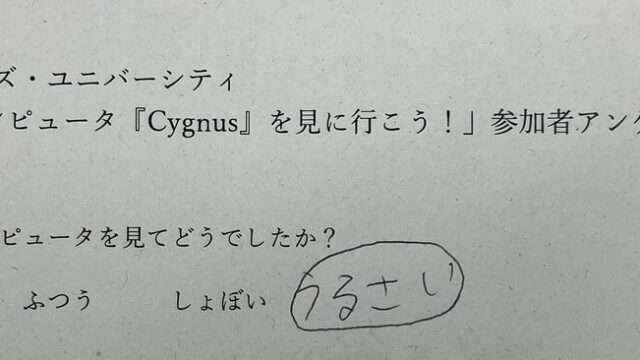 ズ・ユニバーシティ
ピュータ『Cygnus』を見に行こう！」参加者アン
ピュータを見てどうでしたか？
ふつう しょぼい うるさい